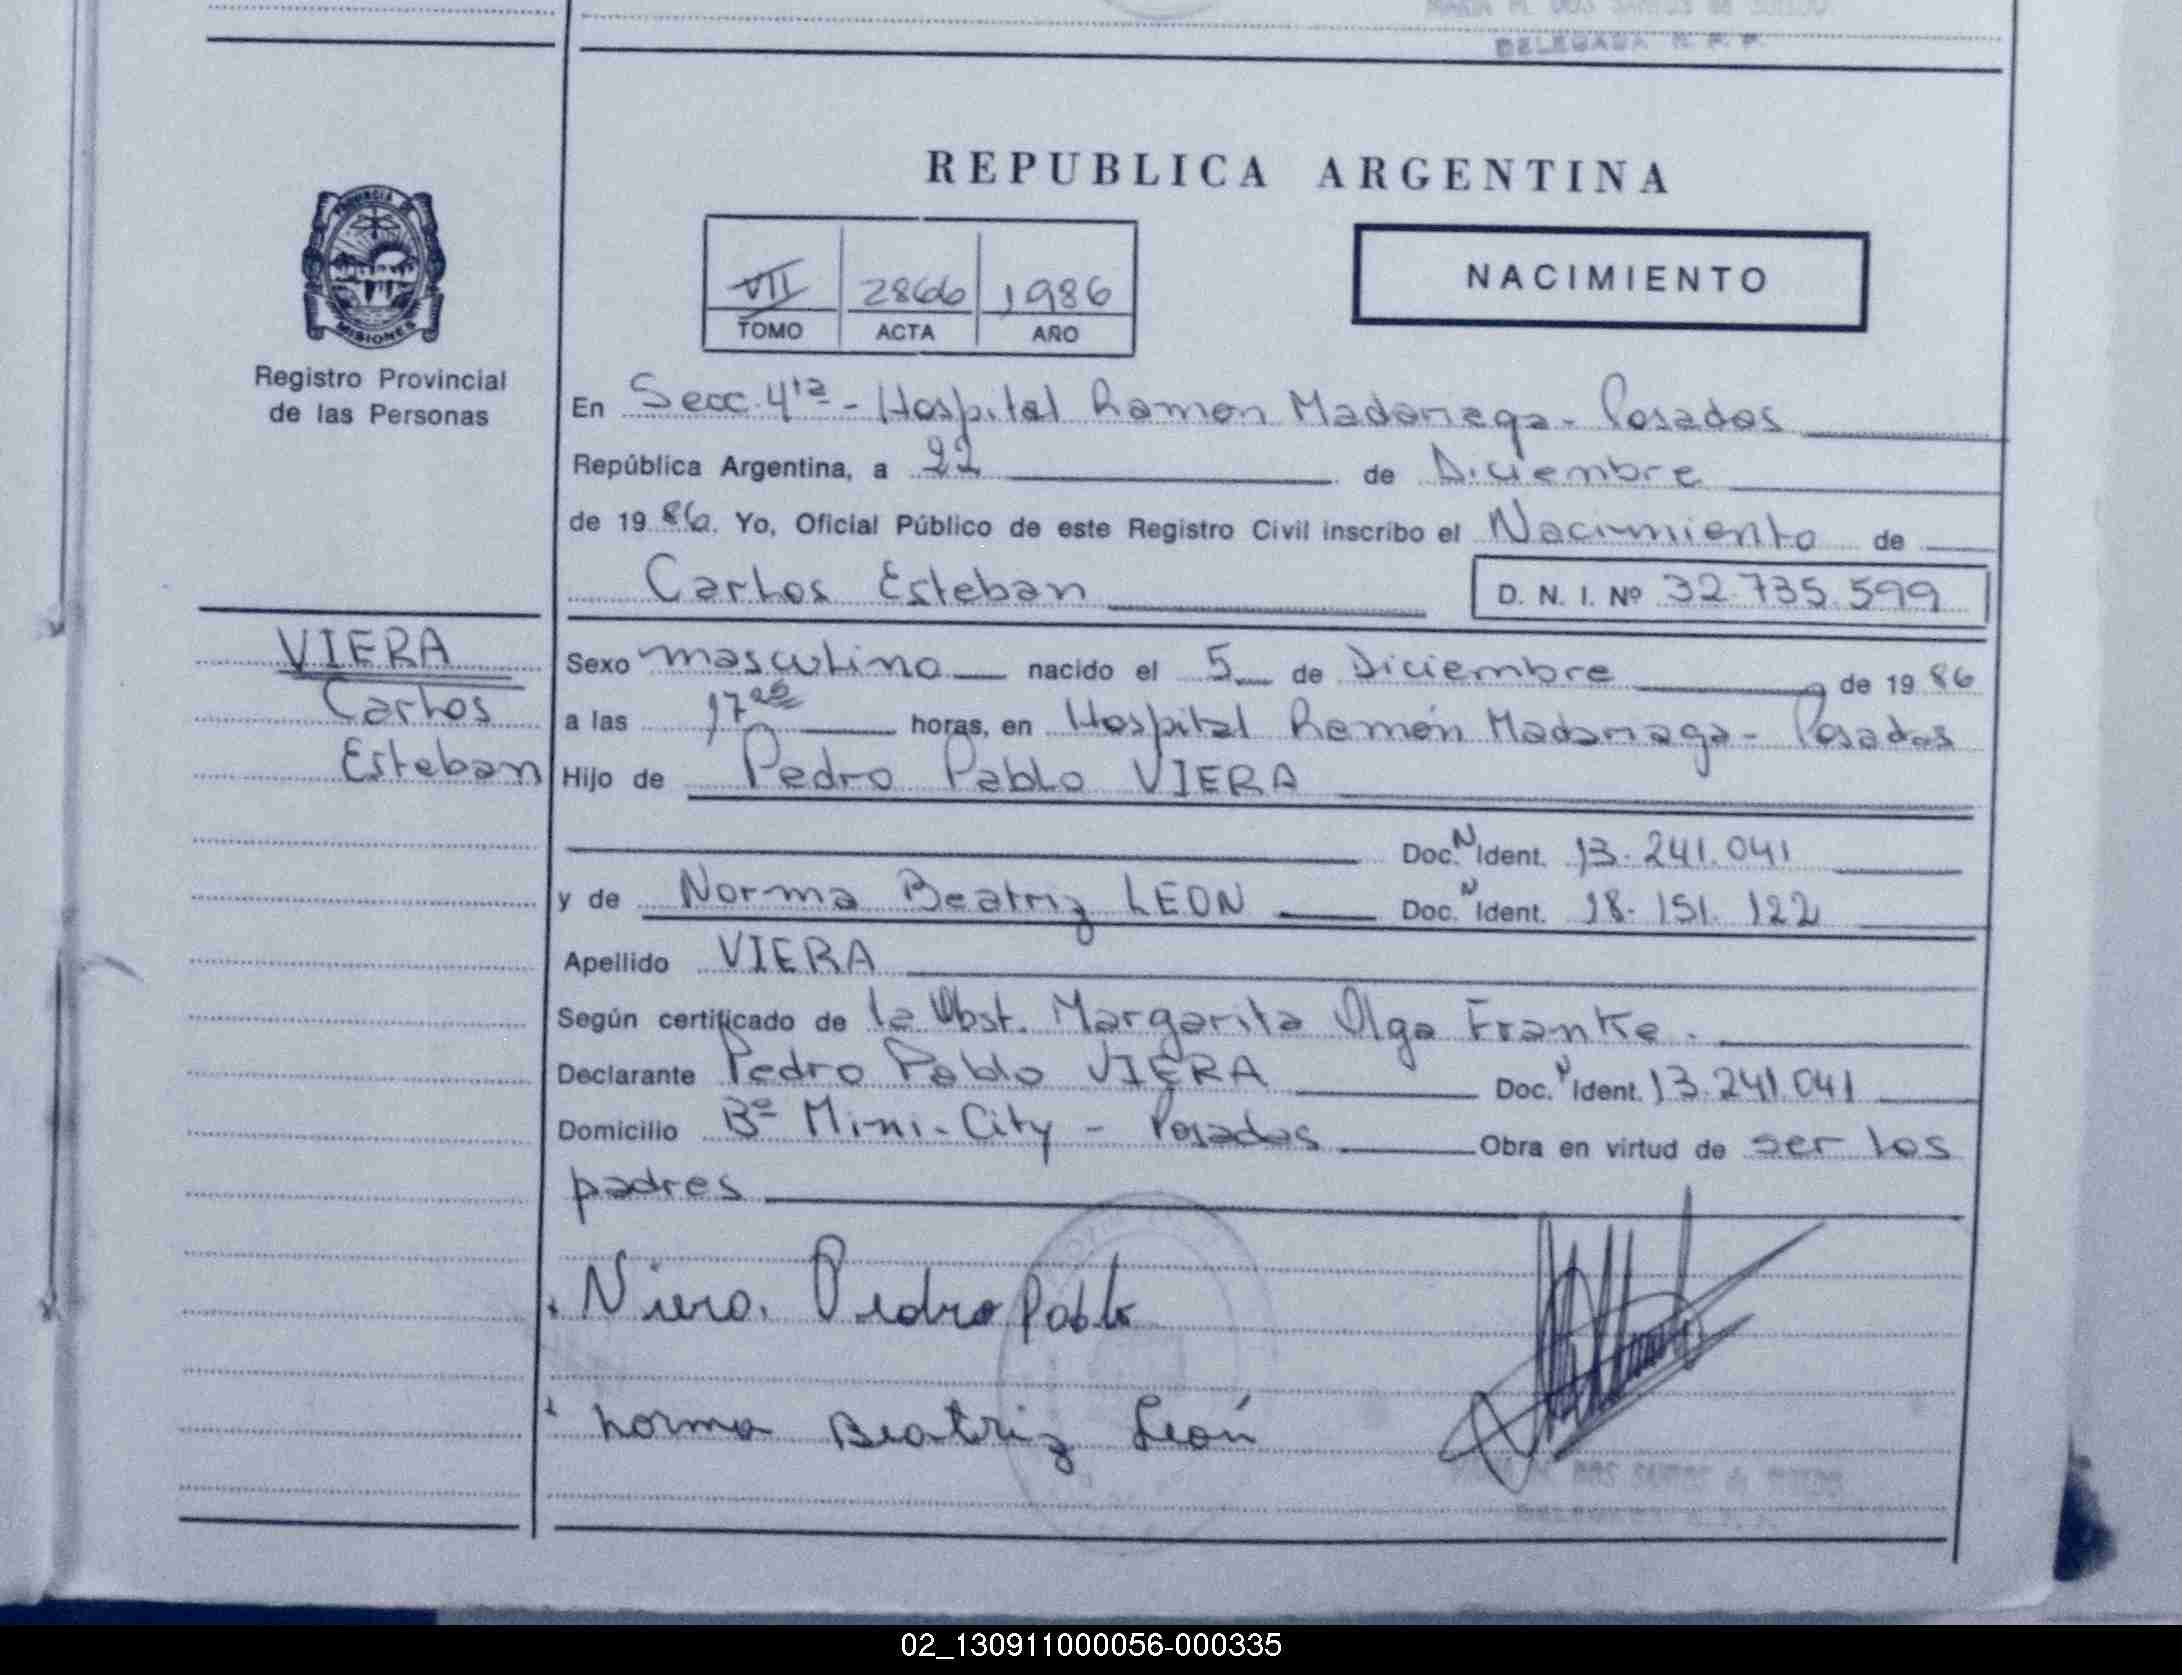 DELEGADA R. P. P.
REPUBLICA ARGENTINA
PROVINCIA DE
MISIONES
Registro Provincial
de las Personas
VII 2866 1986
TOMO ACTA AÑO
NACIMIENTO
En Secc. 4ta - Hospital Ramon Madariaga - Posadas
República Argentina, a 22 de Diciembre
de 19 86. Yo, Oficial Público de este Registro Civil inscribo el Nacimiento de
Carlos Esteban D. N. I. Nº 32.735.599
VIERA
Carlos
Esteban
Sexo masculino nacido el 5 de Diciembre de 19 86
a las 17 horas, en Hospital Ramón Madariaga - Posadas
Hijo de Pedro Pablo VIERA
Doc. N Ident. 13.241.041
y de Norma Beatriz LEON Doc. N Ident. 18.151.122
Apellido VIERA
Según certificado de la Obst. Margarita Olga Franke.
Declarante Pedro Pablo VIERA Doc. N Ident. 13.241.041
Domicilio Bº Mini-City - Posadas Obra en virtud de ser los
padres
Viera. Pedro Pablo
Norma Beatriz León
02_130911000056-000335